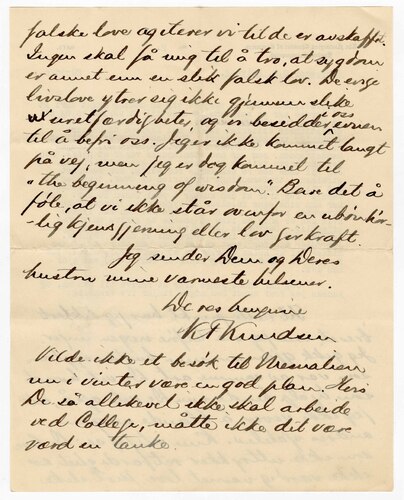 falske love agiterer vi til de er avskaffet.
Ingen skal få mig til å tro, at sygdom
er annet enn en slik falsk lov. De evige
livslove ytrer sig ikke gjennem slike
uretfærdigheter, og vi besidder oss evnen
til å befri oss. Jeg er ikke kommet langt
på vej, men jeg er dog kommet til
"the beginning of wisdom". Bare det å
føle, at vi ikke står overfor en ubønhør-
lig kjensgjerning eller lov gir kraft.
Jeg sender Dem og Deres
hustru mine varmeste hilsener.
Deres hengivne
K T Knudsen
Vilde ikke et besøk til
nu i vinter være en god plan. Hvis
De så allikevel ikke skal arbeide
ved College, måtte ikke dit være
værd en tanke.